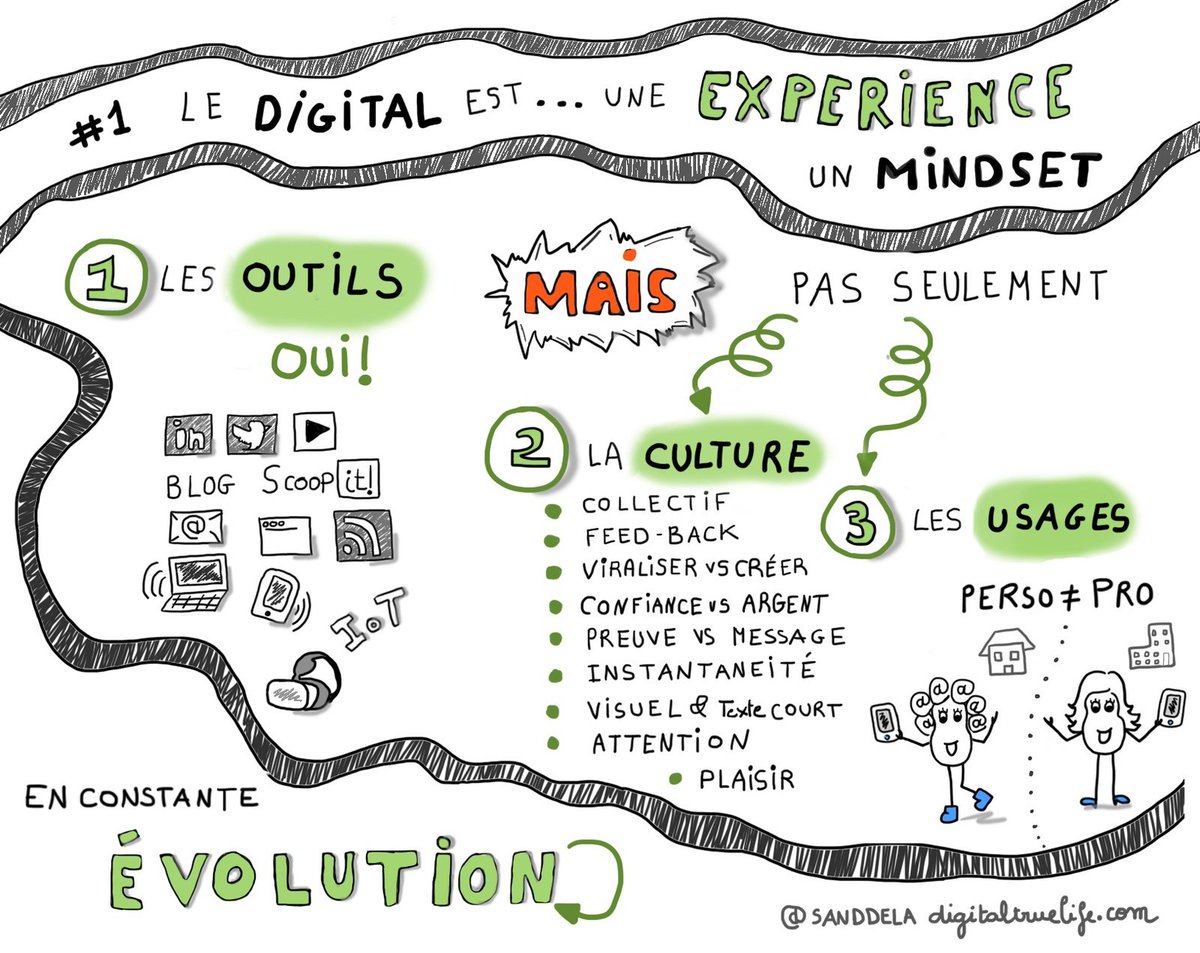 #1 LE DiGiTAL EST... UNE EXPERiENCE
UN MiNDSET
1 LES OUTiLS
OUi!
MAiS
PAS SEULEMENT
in
BLOG Scoop it!
@
IoT
2 LA CULTURE
COLLECTiF
FEED-BACK
ViRALiSER VS CRÉER
CONFiANCE VS ARGENT
PREUVE VS MESSAGE
iNSTANTANEiTÉ
ViSUEL & Texte COURT
ATTENTiON
PLAiSiR
3 LES USAGES
PERSO ≠ PRO
@ @ @ @ @ @
EN CONSTANTE
ÉVOLUTiON
@SANDDELA digitaltruelife.com